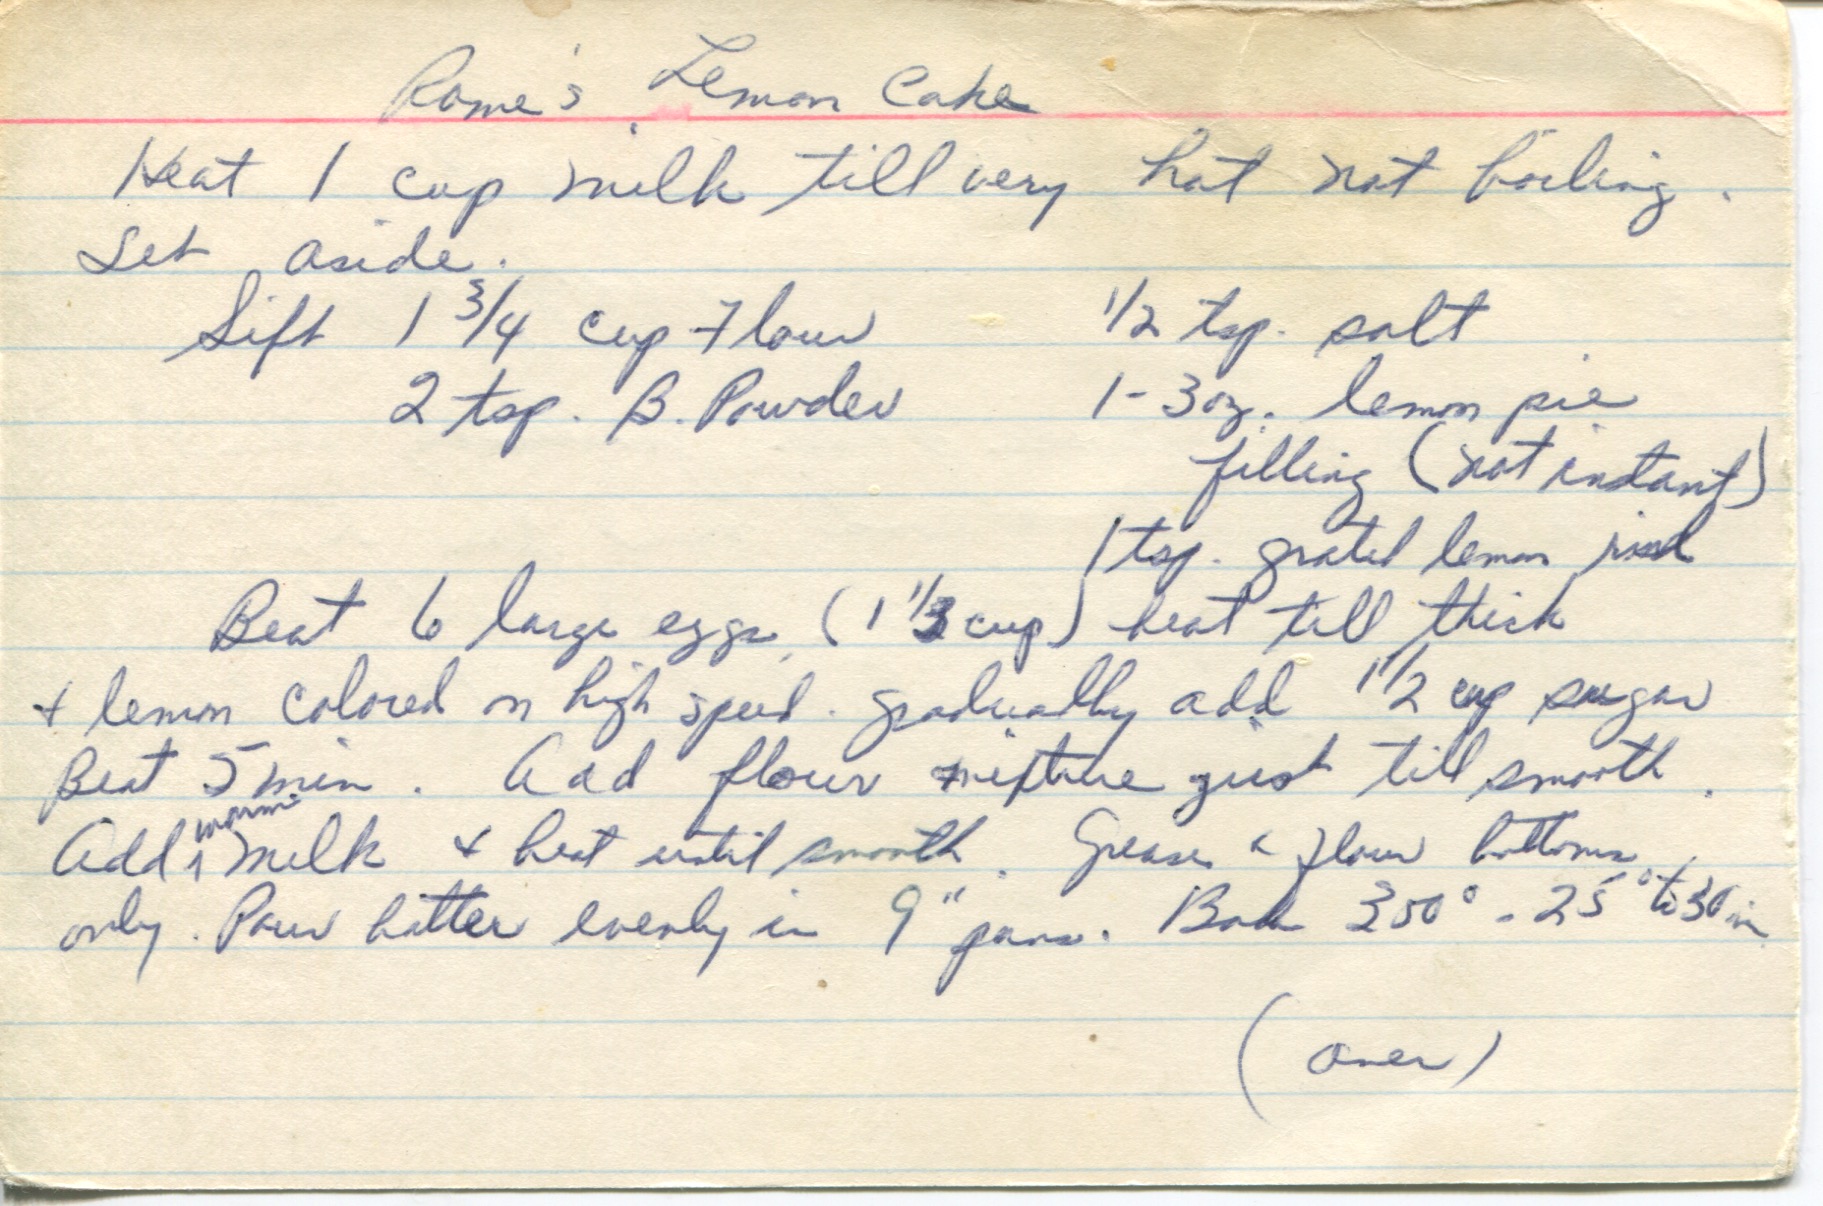 Rome's Lemon Cake
Heat 1 cup milk till very hot not boiling.
Set aside.
Sift 1 3/4 cup Flour 1/2 tsp. salt
2 tsp. B. Powder 1-3oz. lemon pie
filling (not instant)
1 tsp. grated lemon rind
Beat 6 large eggs (1 1/3 cup) beat till thick
& lemon colored on high speed. gradually add 1 1/2 cup sugar
Beat 5 min. Add flour mixture just till smooth.
Add warm milk & beat until smooth. Grease & flour bottoms
only. Pour batter evenly in 9" pans. Bake 350° - 25 to 30 min
(over)